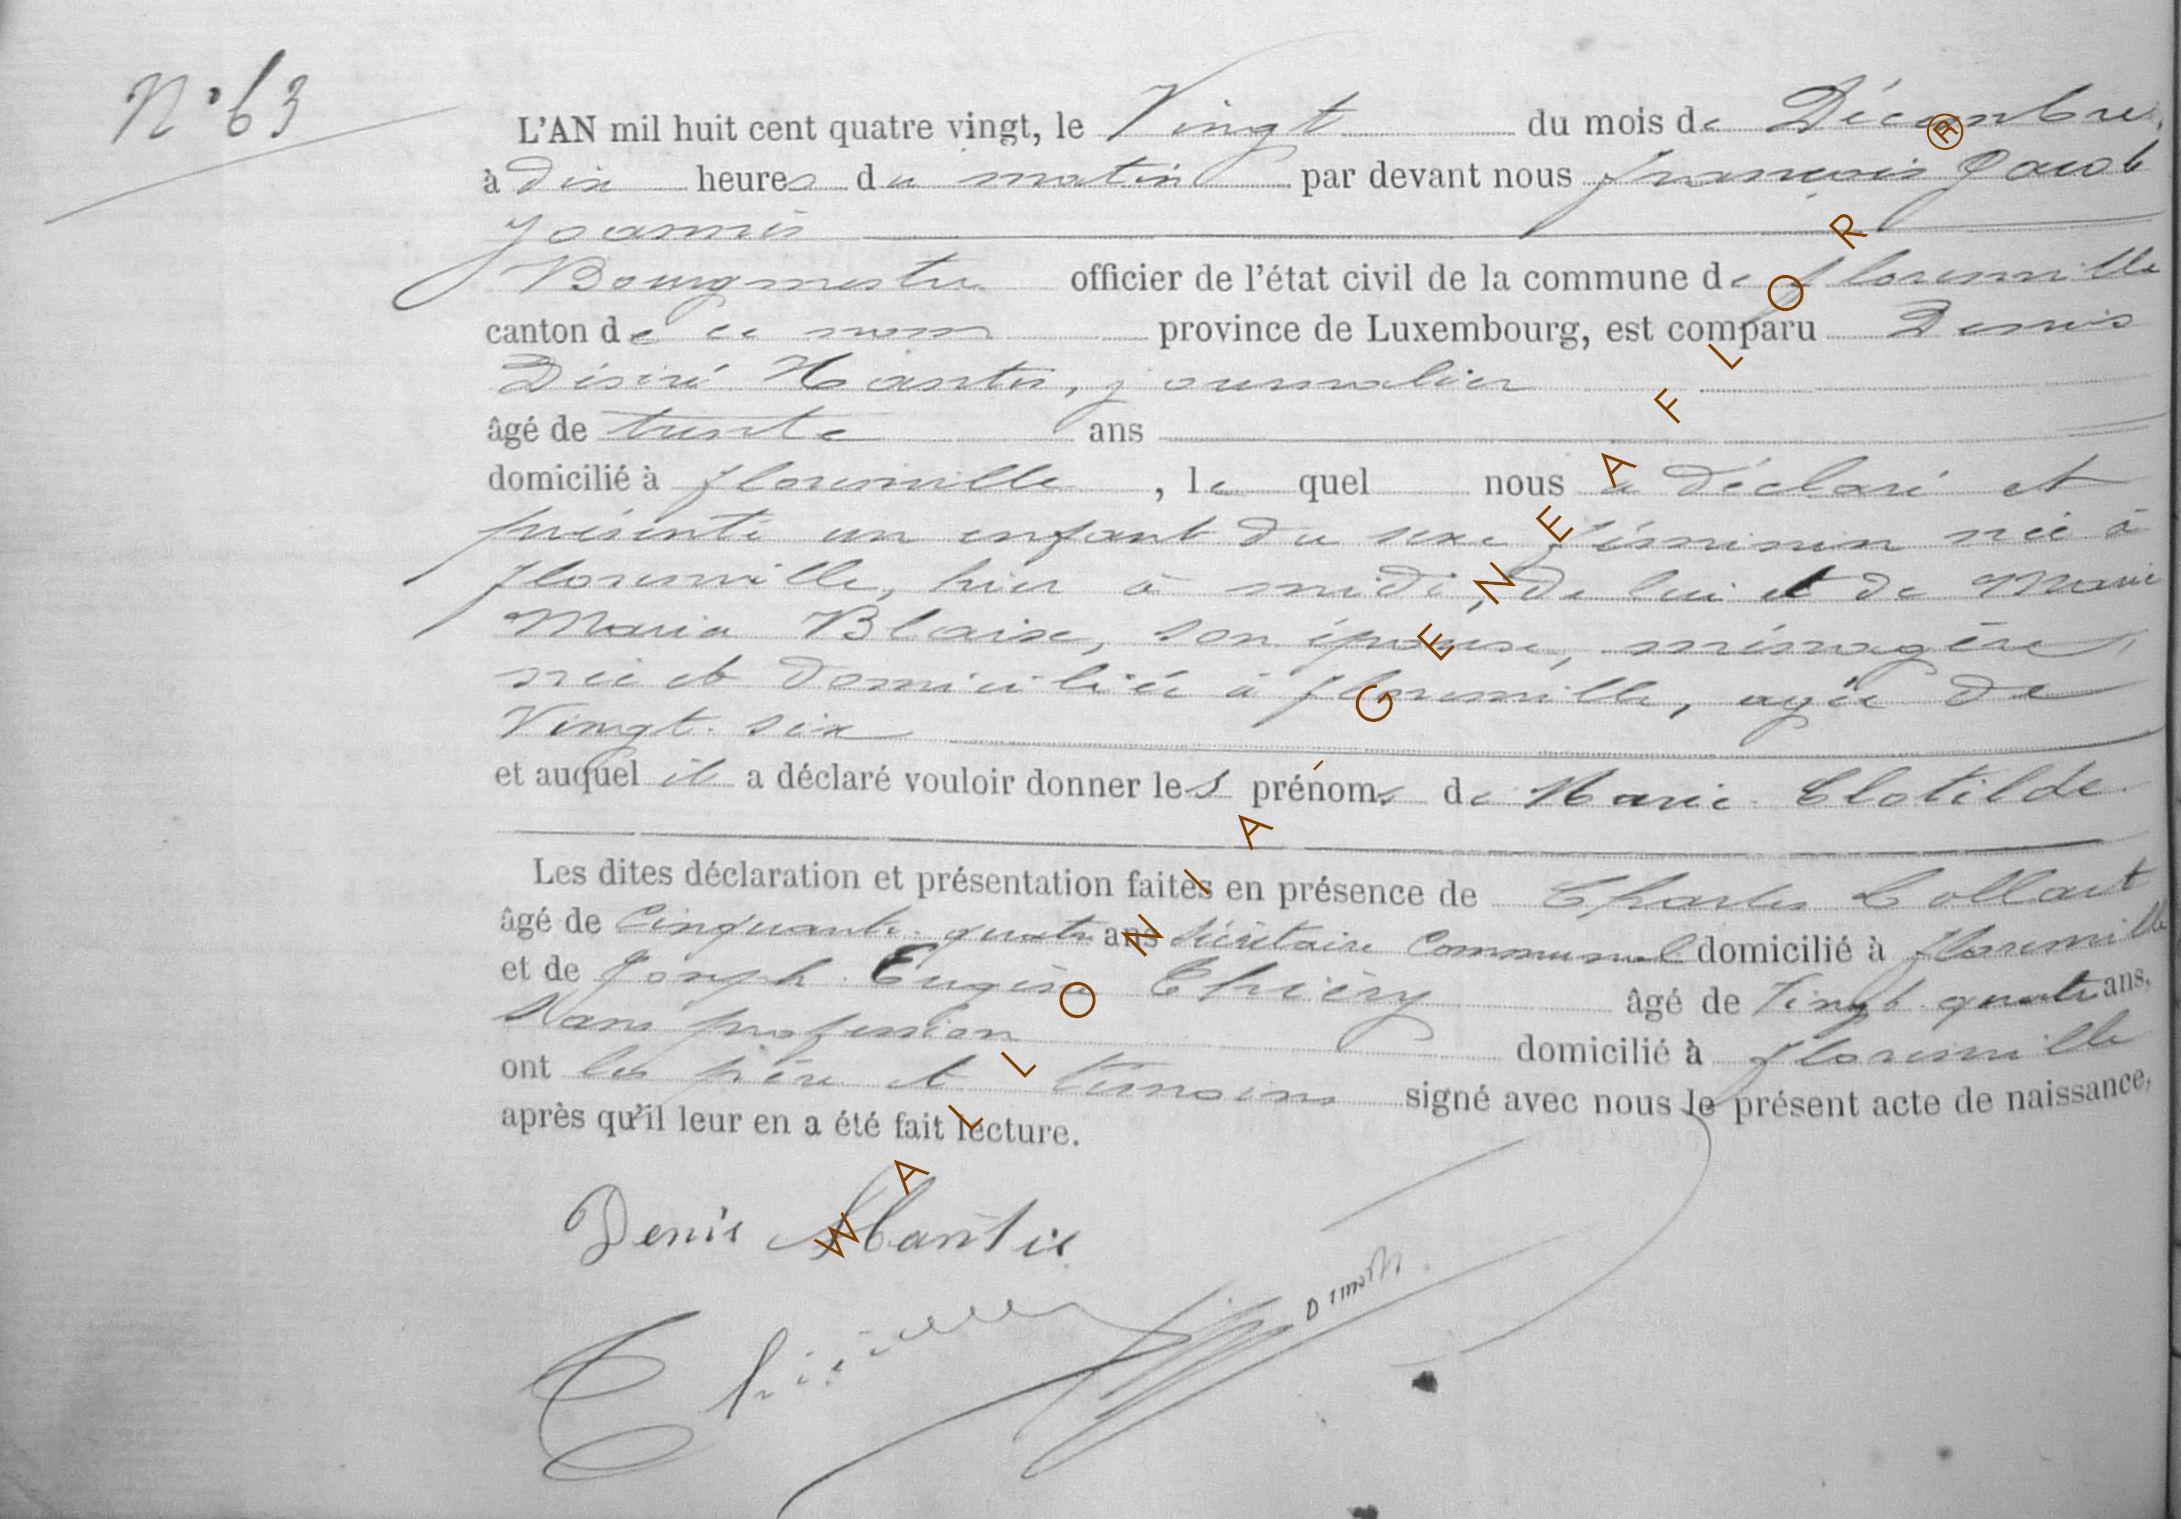 N° 63
L'AN mil huit cent quatre vingt, le Vingt du mois de Décembre,
à dix heures du matin par devant nous françois Jacob
Joannès
Bourgmestre officier de l'état civil de la commune de florenville
canton de ce nom province de Luxembourg, est comparu Denis
Désiré Hantie, journalier
âgé de trente ans
domicilié à florenville, le quel nous a déclaré et
présenté un enfant du sexe féminin née à
florenville, hier à midi, de lui et de Marie
Maria Blaise, son épouse, ménagère,
née et domiciliée à florenville, agée de
Vingt-six
et auquel il a déclaré vouloir donner les prénoms de Marie-Clotilde
Les dites déclaration et présentation faites en présence de Charles Collart
âgé de Cinquante-quatre ans Sécrétaire Communal domicilié à florenville
et de Joseph Eugène Thiéry âgé de Vingt-quatre ans,
sans profession domicilié à florenville
ont les père et témoins signé avec nous le présent acte de naissance,
après qu'il leur en a été fait lecture.
Denis Hantie
WALLONIA GÉNÉAFLOR ®